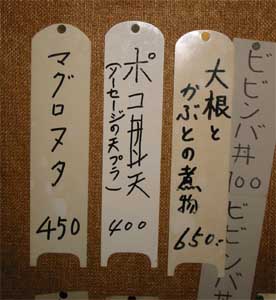 ビビンバ丼
700
ビビンバ丼
大根と
かぶとの煮物
650.-
ポコ天
(ソーセージの天プラ)
400
マグロヌタ
450